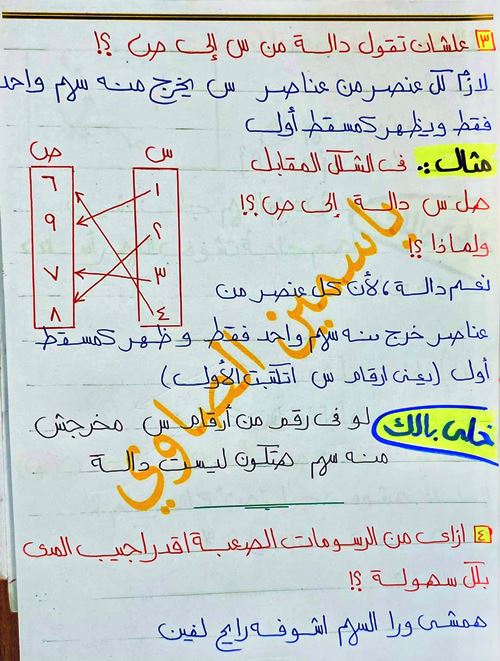 ٣ علشان تقول دالة من س إلى ص ؟!
لازم كل عنصر من عناصر س يخرج منه سهم واحد
فقط ويظهر كمسقط أول
مثال :. فى الشكل المقابل
هل س دالة إلى ص ؟!
ولماذا ؟!
ص س
٦ ١
٩ ٢
٧ ٣
٨ ٤
نعم دالة ، لأن كل عنصر من
عناصر خرج منه سهم واحد فقط وظهر كمسقط
أول (يعنى ارقام س اتكتبت الأول)
خلى بالك لو فى رقم من أرقام س مخرجش
منه سهم هتكون ليست دالة
٤ ازاى من الرسومات الصعبة اقدر اجيب المدى
بكل سهولة ؟!
همشى ورا السهم اشوفه رايح لفين
ياسمين الصاوي